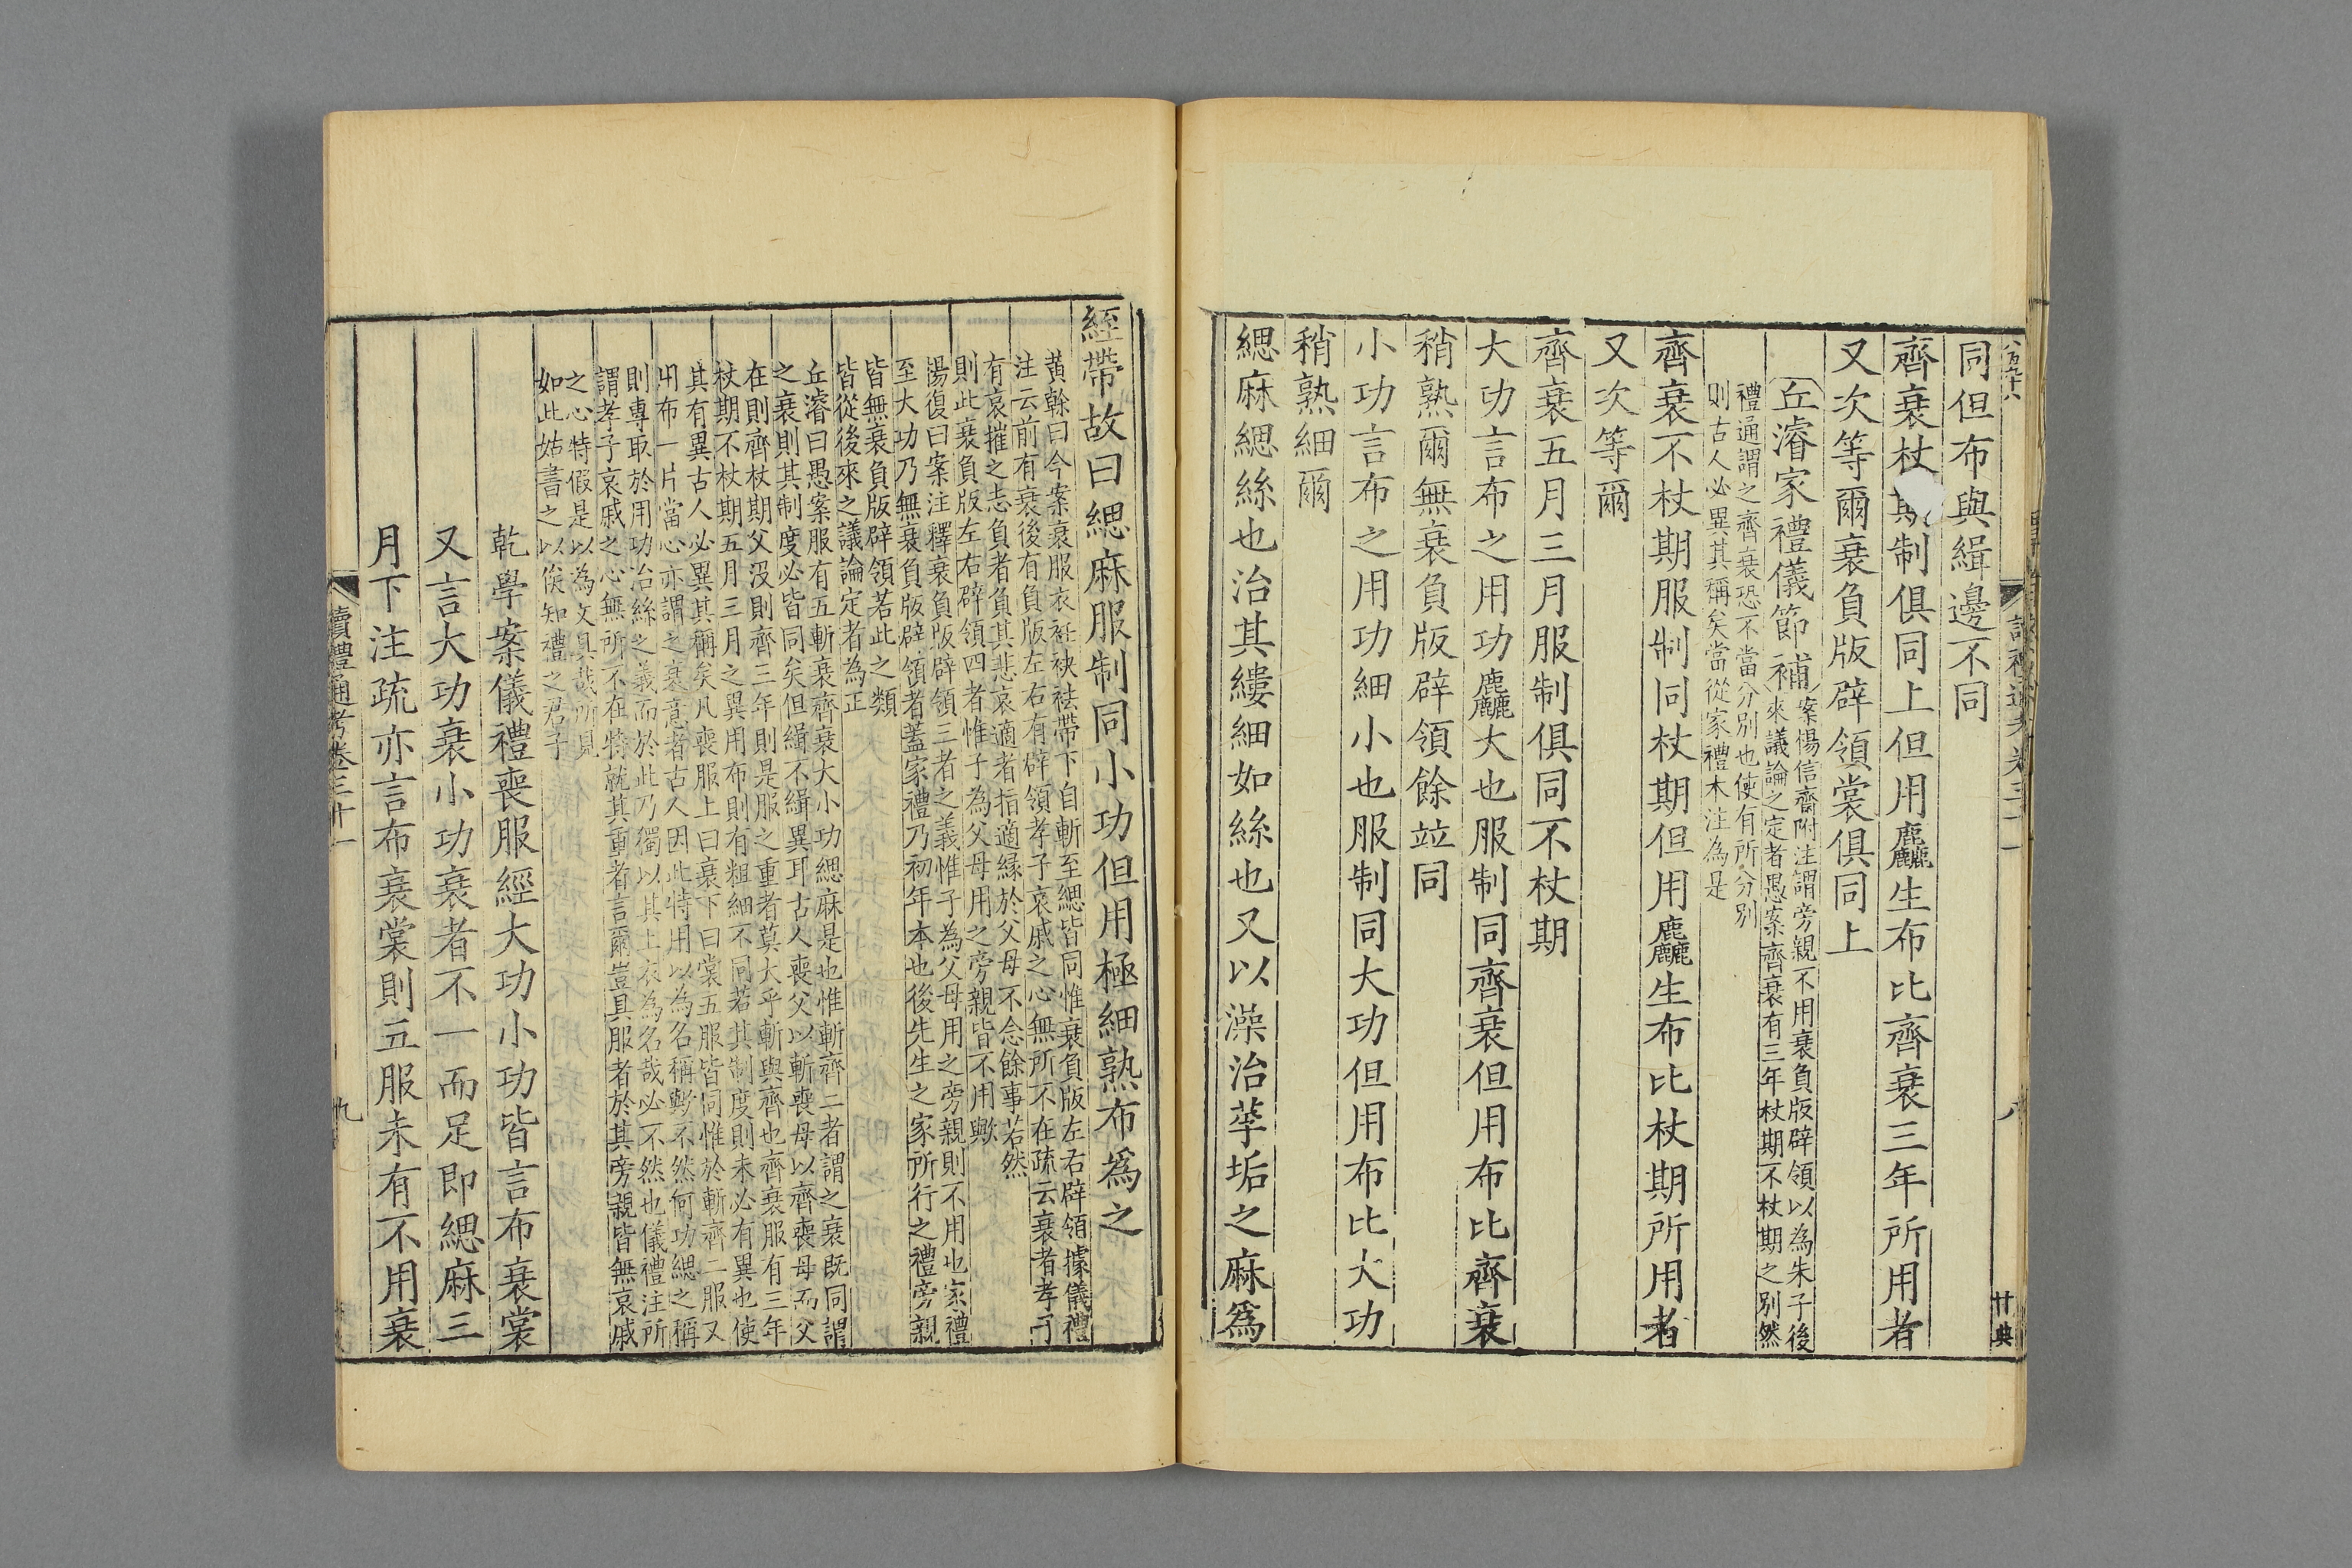 同但布與緝邊不同
齊衰杖期制俱同上但用麤生布比齊衰三年所用者
又次等爾衰負版辟領裳俱同上
丘濬家禮儀節補
案楊信齋附注謂旁親不用衰負版辟領以為朱子後
來議論之定者愚案齊衰有三年杖期不杖期之別然
禮通謂之齊衰恐不當分別也使有所分別
則古人必異其稱矣當從家禮本注為是
齊衰不杖期服制同杖期但用麤生布比杖期所用者
又次等爾
齊衰五月三月服制俱同不杖期
大功言布之用功麤大也服制同齊衰但用布比齊衰
稍熟爾無衰負版辟領餘竝同
小功言布之用功細小也服制同大功但用布比大功
稍熟細爾
緦麻緦絲也治其縷細如絲也又以澡治莩垢之麻爲
絰帶故曰緦麻服制同小功但用極細熟布爲之
黃榦曰今案衰服衣衽袂袪帶下自斬至緦皆同惟衰負版左右辟領據儀禮
注云前有衰後有負版左右有辟領孝子哀戚之心無所不在疏云衰者孝子
有哀摧之志負者負其悲哀適者指適緣於父母不念餘事若然
則此衰負版左右辟領四者惟子為父母用之旁親皆不用歟
楊復曰案注釋衰負版辟領三者之義惟子為父母用之旁親則不用也家禮
至大功乃無衰負版辟領者蓋家禮乃初年本也後先生之家所行之禮旁親
皆無衰負版辟領若此之類
皆從後來之議論定者為正
丘濬曰愚案服有五斬衰齊衰大小功緦麻是也惟斬齊二者謂之衰既同謂
之衰則其制度必皆同矣但緝不緝異耳古人喪父以斬喪母以齊喪母而父
在則齊杖期父沒則齊三年則是服之重者莫大乎斬與齊也齊衰服有三年
杖期不杖期五月三月之異用布則有粗細不同若其制度則未必有異也使
其有異古人必異其稱矣凡喪服上曰衰下曰裳五服皆同惟於斬齊二服又
用布一片當心亦謂之衰意者古人因此特用以為名稱歟不然何功緦之稱
則專取於用功治絲之義而於此乃獨以其上衣為名哉必不然也儀禮注所
謂孝子哀戚之心無所不在特就其重者言爾豈具服者於其旁親皆無哀戚
之心特假是以為文具哉所見
如此姑書之以俟知禮之君子
乾學案儀禮喪服經大功小功皆言布衰裳
又言大功衰小功衰者不一而足即緦麻三
月下注疏亦言布衰裳則五服未有不用衰
讀禮通考卷三十一
九